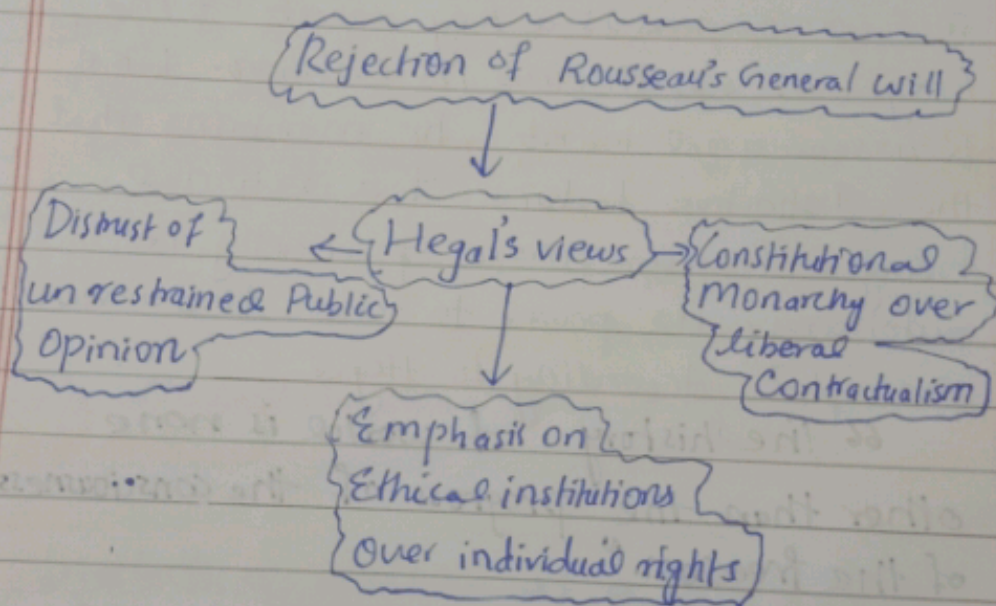 Rejection of Rousseau's General will
Distrust of
unrestrained Public
Opinion
Hegal's views
Constitutional
Monarchy over
liberal
Contractualism
Emphasis on
Ethical institutions
Over individual rights